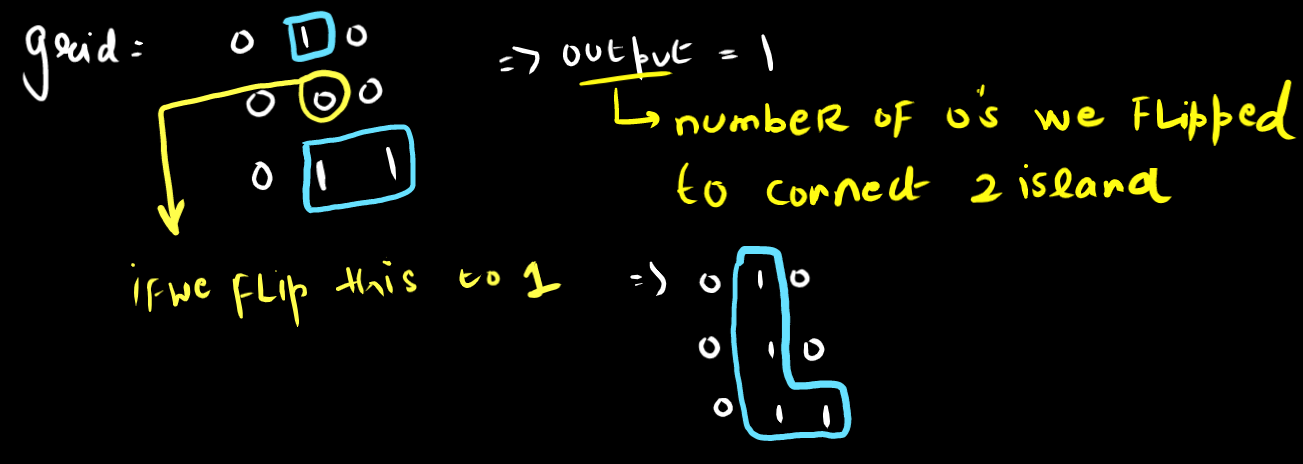 grid = 0 1 0 => output = 1
0 0 0 number of 0's we Flipped
0 1 1 to connect 2 island
if we FLip this to 1 => 0 1 0
0 1 0
0 1 1